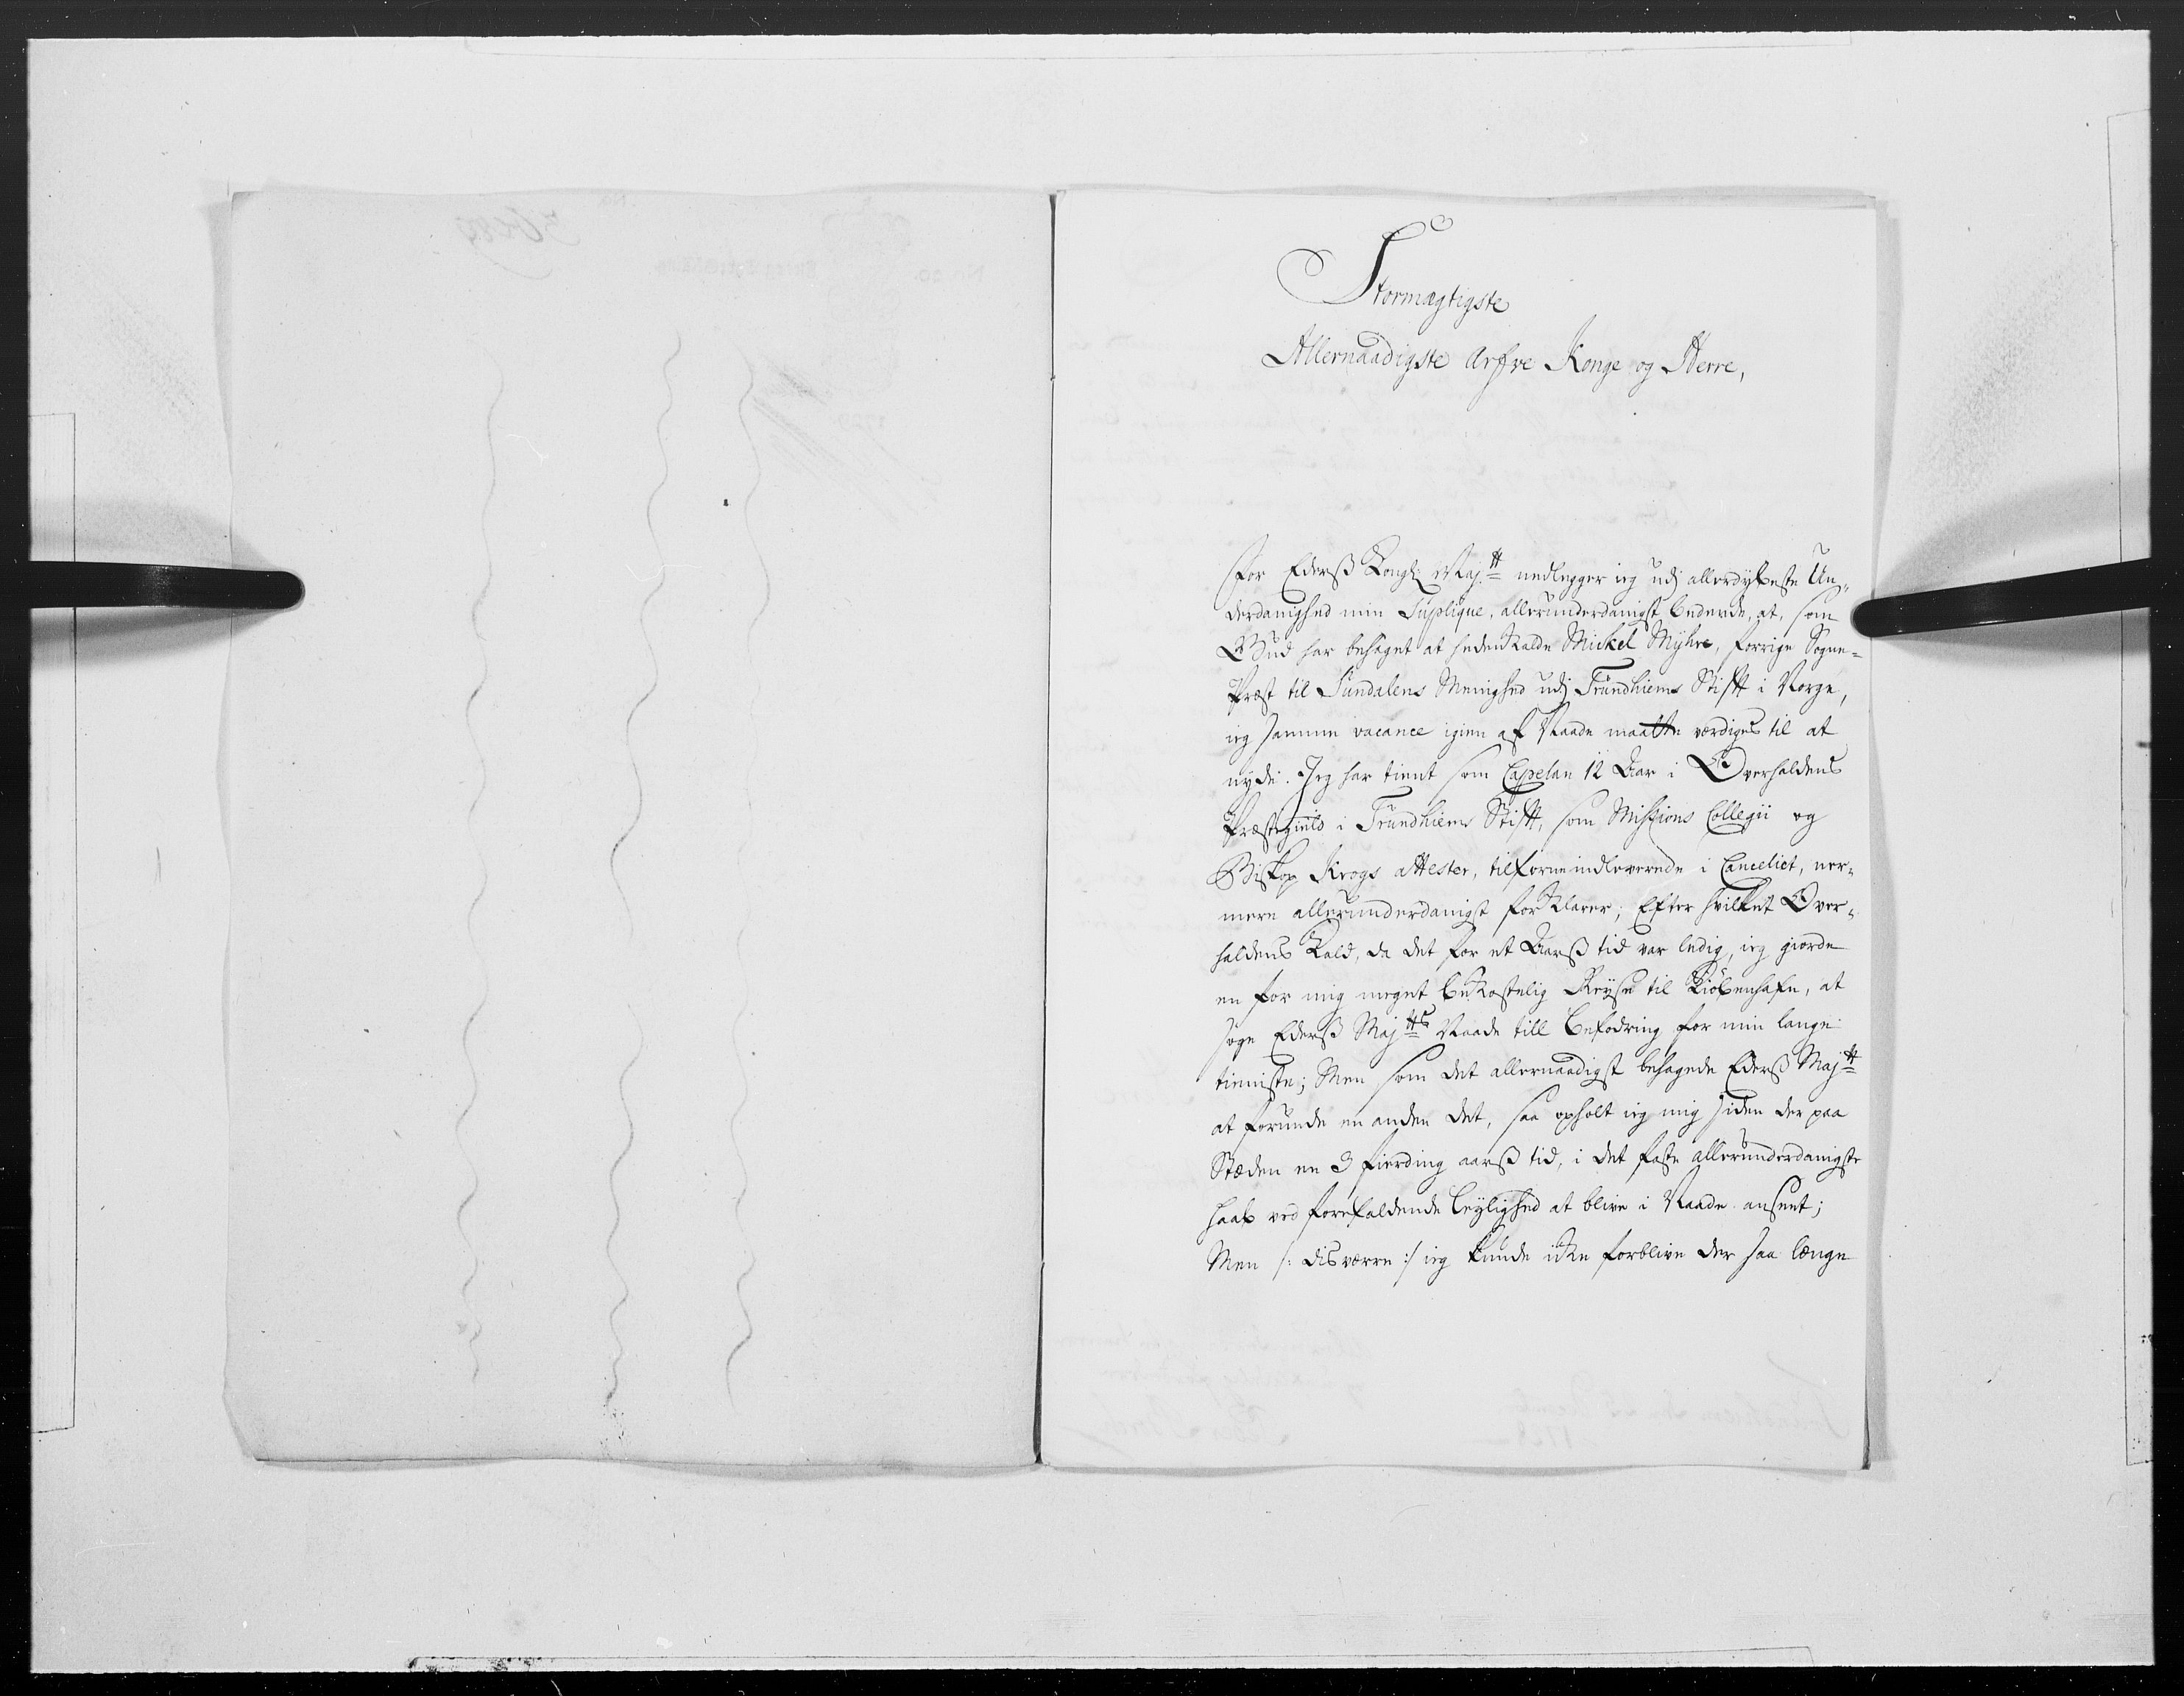 Stormægtigste
Allernaadigste Arfve Konge og Herre,
For Ederß Kongl: Maj:tt nedlegger ieg udj allerdybeste Un-
derdanighed min Suplique, allerunderdanigst bedende, at, som
Gud har behaget at hedenkalde Mickel Myhre, forrige Sogne-
Præst til Sundalens Meenighed udj Trundhiems Stifft i Norge,
ieg samme vacance igien af Naade maatte værdiges til at
nyde. Jeg har tient som Capelan 12 Aar i Overhaldens
Præstegield i Trundhiems Stifft, som Missions Collegii og
Biskop Krogs attester, tilforne indleverede i Canceliet, ner-
mere allerunderdanigst forklarer; Efter hvilket Over-
haldens Kald, da det for et Aarß tid var ledig, ieg giorde
en for mig meget bekostelig Reyse til Kiöbenhafn, at
søge Ederß Maj:tts Naade till befodring for min lange
tieniste; Men som det allernaadigst behagede Ederß Maj:tt
at forunde en anden det, saa opholt ieg mig siden der paa
Stæden en 3 fierding aarß tid, i det faste allerunderdanigste
haab ved forefaldende leylighed at blive i Naade anseet;
Men /: disværre :/ ieg kunde ikke forblive der saa længe